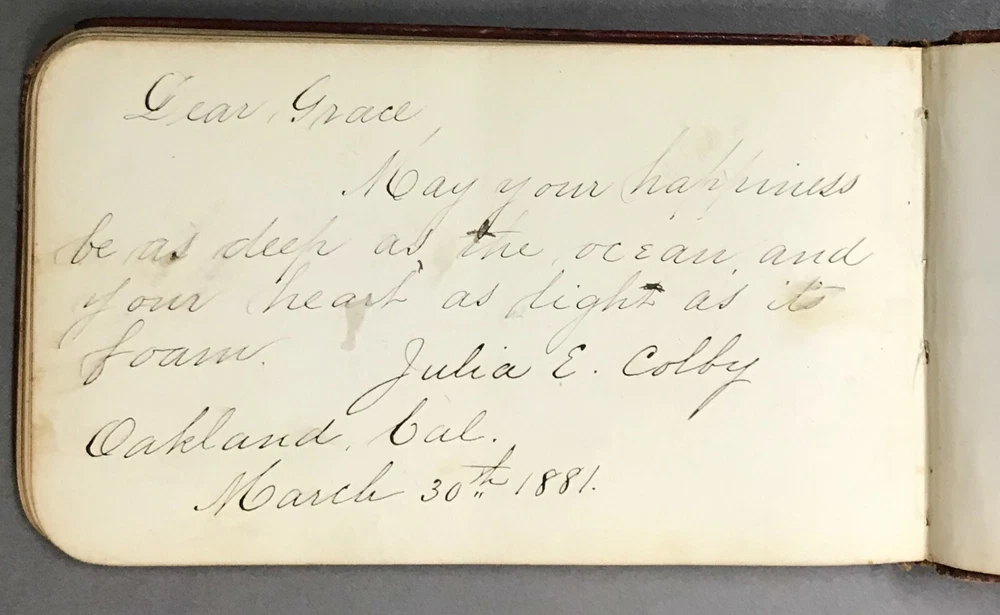 Dear Grace,
May your happiness
be as deep as the ocean, and
your heart as light as its
foam.
Julia E. Colby
Oakland, Cal.
March 30th 1881.